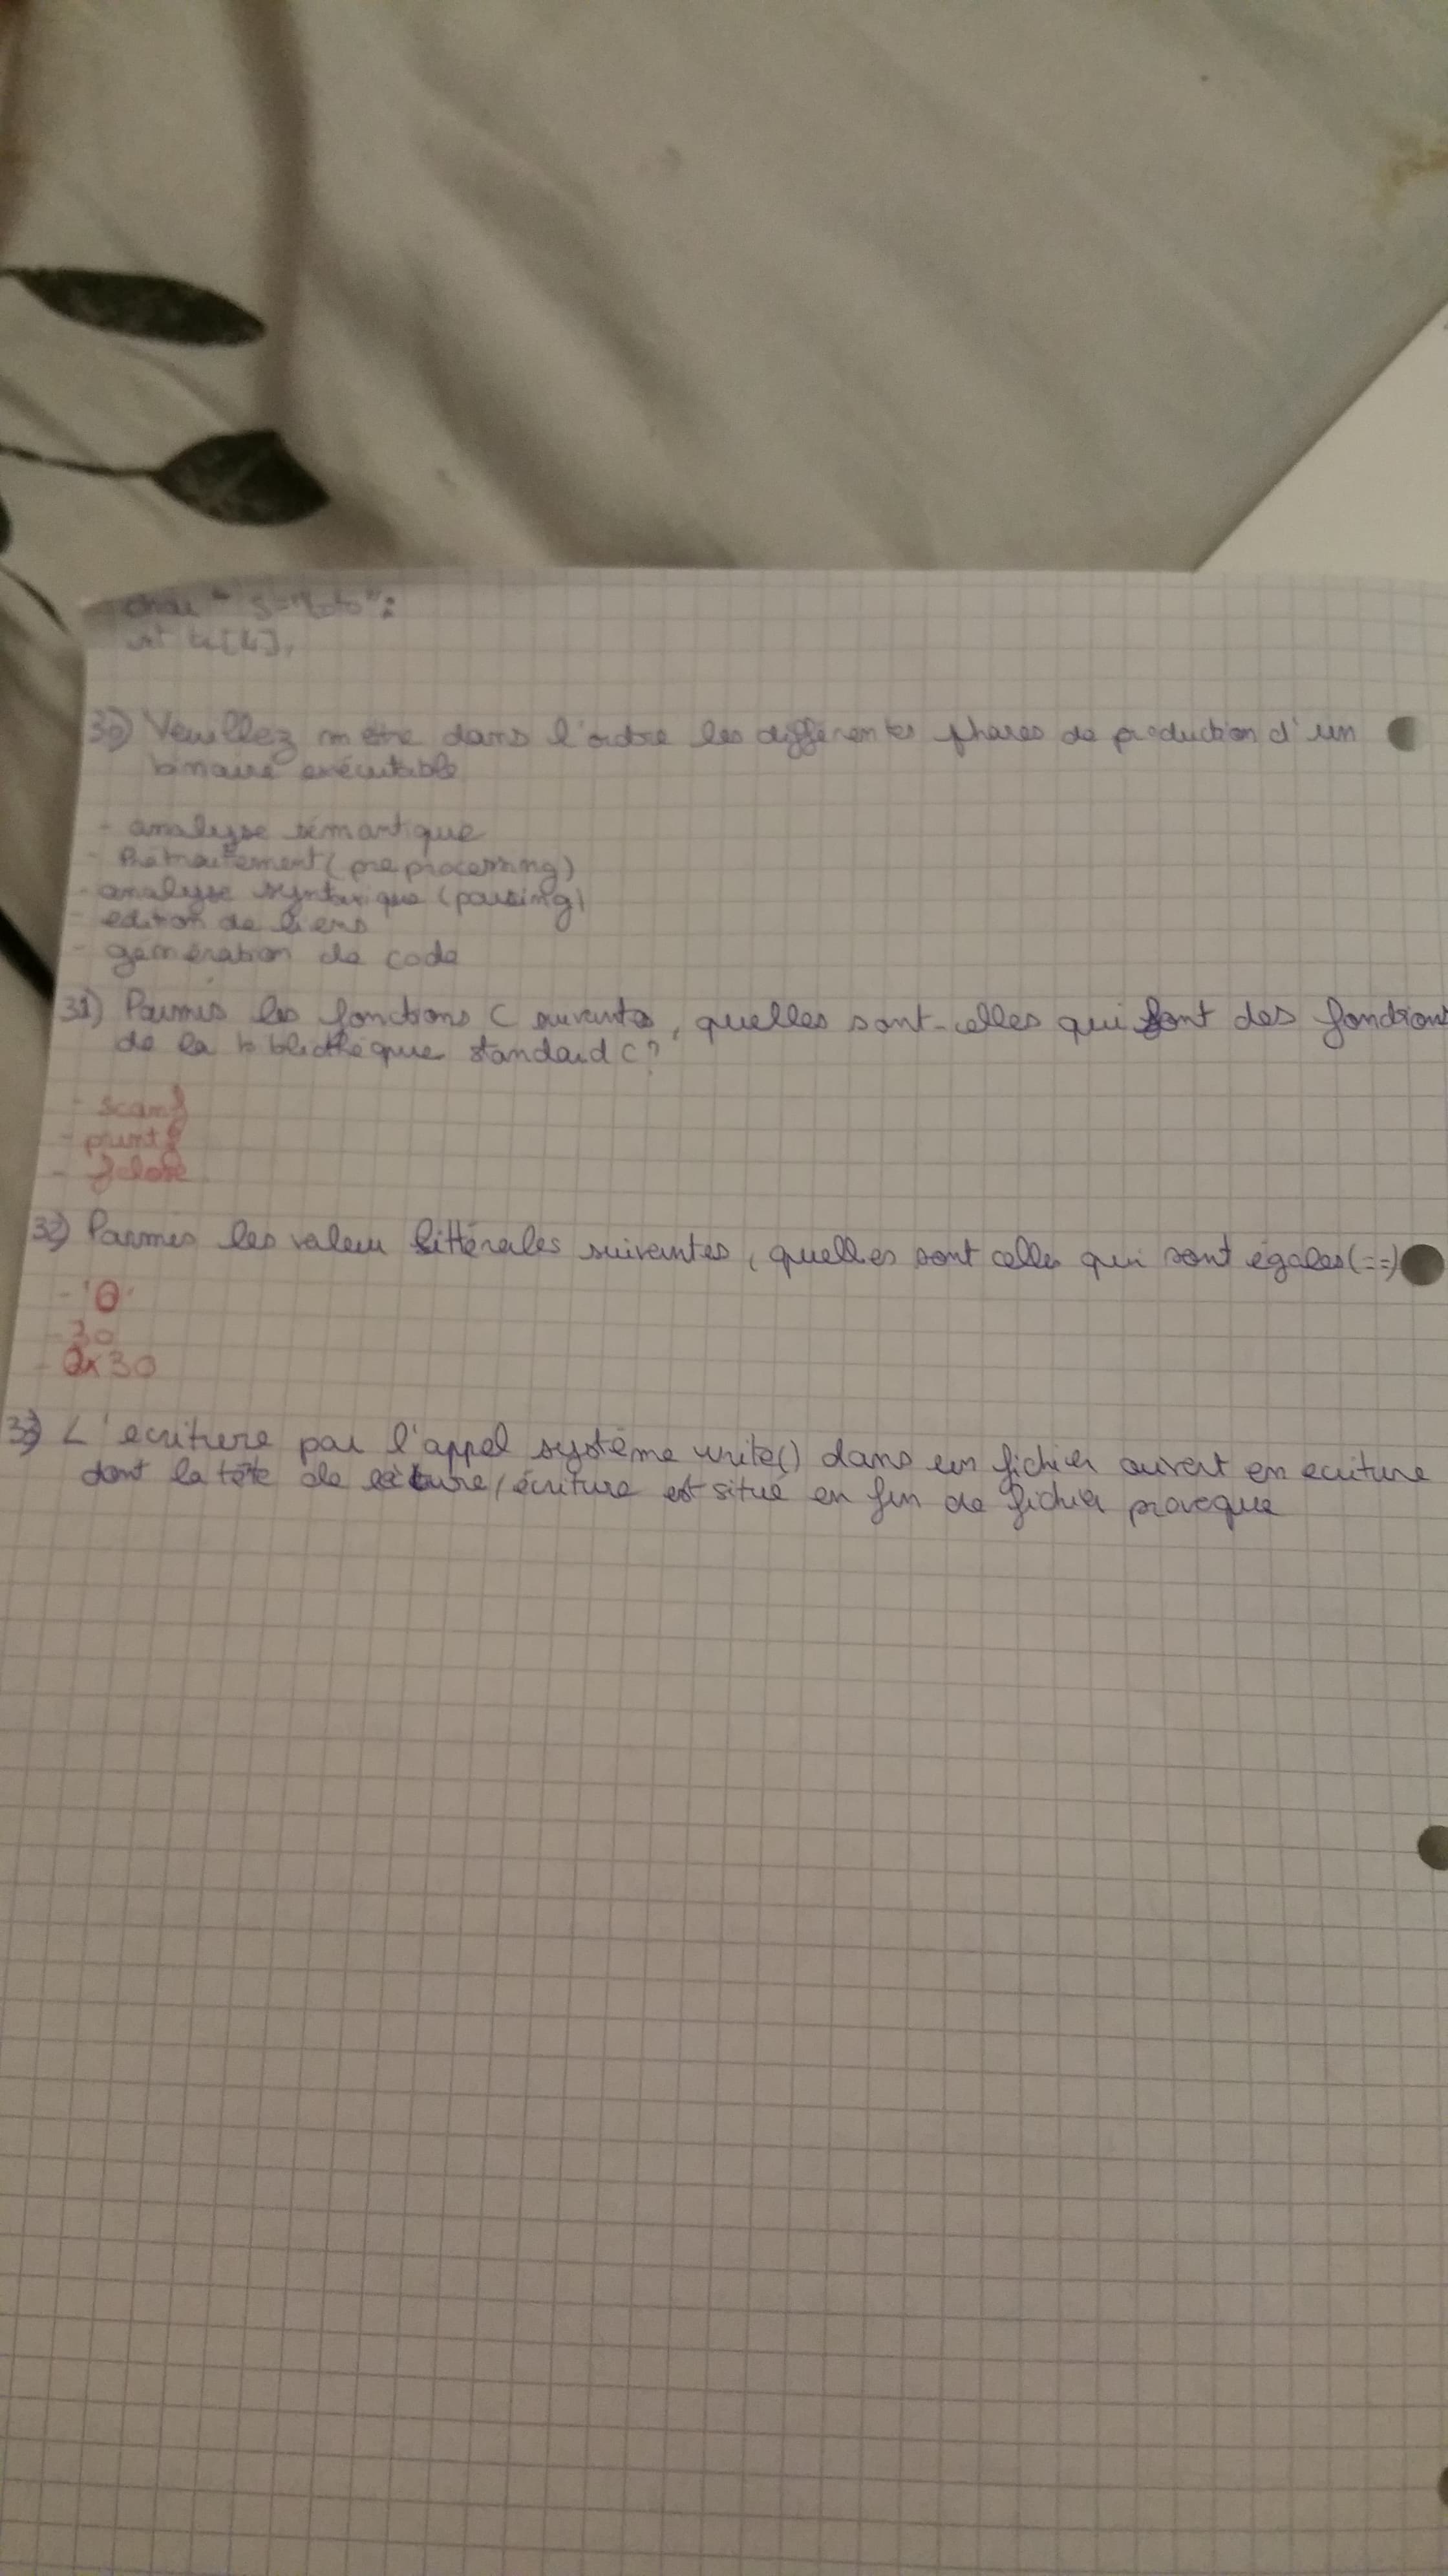 char * s="toto";
int t[4],
30) Veuillez mettre dans l'ordre les différentes phases de production d'un
binaire exécutable
- analyse sémantique
- Prétraitement (preprocessing)
- analyse syntaxique (parsing)
- edition de liens
- génération de code
31) Parmis les fonctions C suivantes, quelles sont-celles qui sont des fonctions
de la bibliothèque standard C?
- scanf
- printf
- fclose
32) Parmis les valeur littérales suivantes, quelles sont celles qui sont égales(==)
- '0'
- 30
- 0x30
33) L'ecriture par l'appel système write() dans un fichier ouvert en ecriture
dont la tête de lecture/écriture est situé en fin de fichier provoque